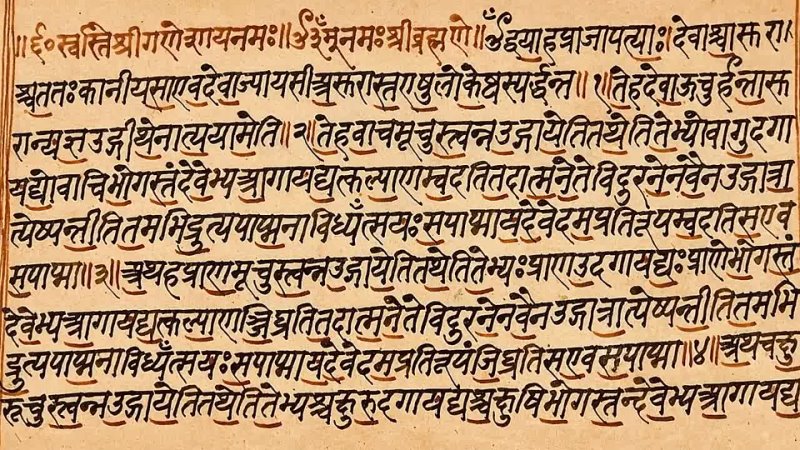 ॥६०स्वस्तिश्रीगणेशायनमः॥ॐनमःश्रीब्रह्मणे॥ॐद्वयाहप्राजापत्याः।देवाश्चासुरा
श्चततःकानीयसाएवदेवाज्यायसाअसुरास्तएषुलोकेष्वस्पर्द्धन्त॥१॥तेहदेवाऊचुर्हन्तासु
रान्यज्ञउद्गीथेनात्ययामेति॥२॥तेहवाचमूचुस्त्वन्नउद्गायेतितथेतितेभ्योवागुदगा
यद्योवाचिभोगस्तंदेवेभ्यआगायद्यत्कल्याणम्वदतितदात्मनेतेविदुरनेनवैनउद्गात्रा
त्येष्यन्तीतितमभिद्रुत्यपाप्मनाविध्यँत्सयःसपाप्मायदेवेदमप्रतिरूपम्वदतिसएव
सपाप्मा॥३॥अथहप्राणमूचुस्त्वन्नउद्गायेतितथेतितेभ्यःप्राणउदगायद्यःप्राणेभोगस्तं
देवेभ्यआगायद्यत्कल्याणञ्जिघ्रतितदात्मनेतेविदुरनेनवैनउद्गात्रात्येष्यन्तीतितमभि
द्रुत्यपाप्मनाविध्यँत्सयःसपाप्मायदेवेदमप्रतिरूपंजिघ्रतिसएवसपाप्मा॥४॥अथचक्षु
रूचुस्त्वन्नउद्गायेतितथेतितेभ्यश्चक्षुरुदगायद्यश्चक्षुषिभोगस्तन्देवेभ्यआगायद्य